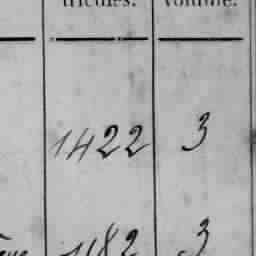 tricules. volume.
1422 3
1182 3